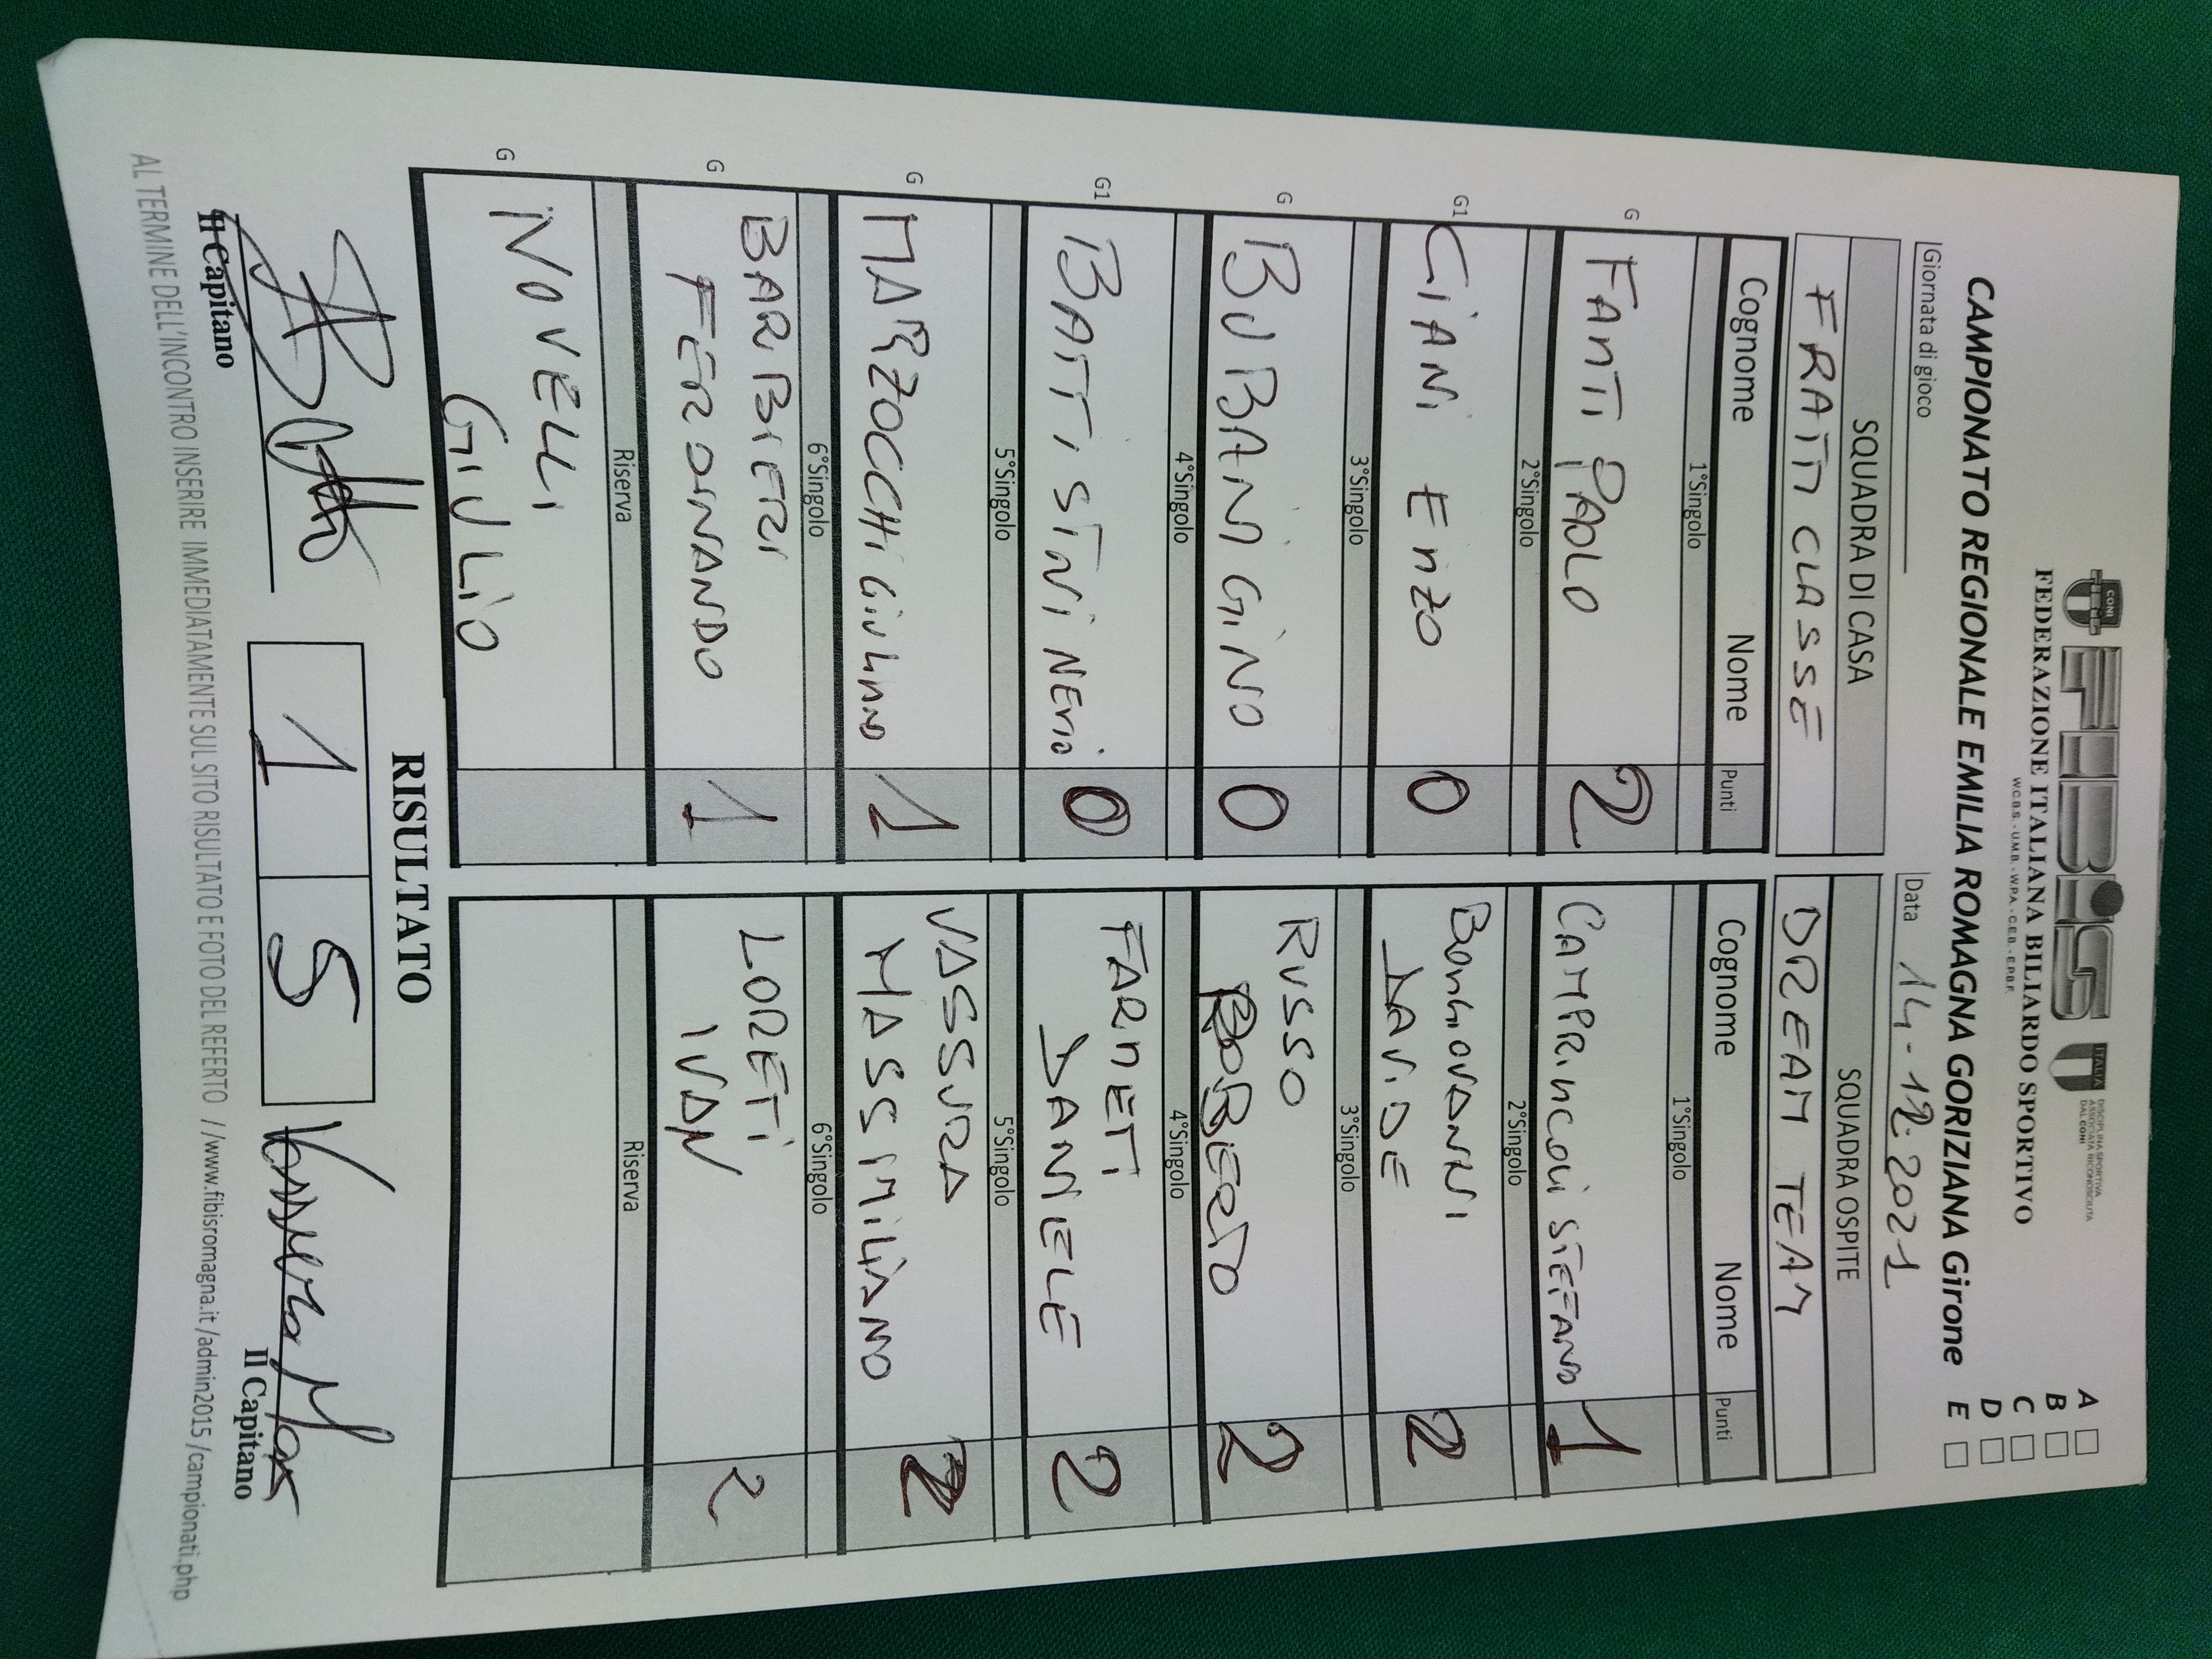 CONI
FIBiS
ITALIA
DISCIPLINA SPORTIVA
ASSOCIATA RICONOSCIUTA
DAL CONI
FEDERAZIONE ITALIANA BILIARDO SPORTIVO
W.C.B.S. - U.M.B. - W.P.A. - C.E.B. - E.P.B.F.
CAMPIONATO REGIONALE EMILIA ROMAGNA GORIZIANA Girone
A
B
C
D
E
Giornata di gioco
Data 14-12-2021
SQUADRA DI CASA
FRATTI CLASSE
SQUADRA OSPITE
DREAM TEAM
Cognome Nome Punti
Cognome Nome Punti
1°Singolo
1°Singolo
G FANTI PAOLO 2
CAMPRINCOLI STEFANO 1
2°Singolo
2°Singolo
G1 CIANI ENZO 0
BONGIOVANNI
DAVIDE 2
3°Singolo
3°Singolo
G BUBANI GINO 0
RUSSO
ROBERTO 2
4°Singolo
4°Singolo
G1 BATTISTINI NERIO 0
FARNETI
DANIELE 2
5°Singolo
5°Singolo
G MARZOCCHI GIULIANO 1
VASSURA
MASSIMILIANO 2
6°Singolo
6°Singolo
G BARBIERI
FERDINANDO 1
LORETI
IVAN 2
Riserva
Riserva
G NOVELLI
GIULIO
RISULTATO
1 5
Il Capitano
Vassura Max
Il Capitano
AL TERMINE DELL'INCONTRO INSERIRE IMMEDIATAMENTE SUL SITO RISULTATO E FOTO DEL REFERTO //www.fibisromagna.it/admin2015/campionati.php